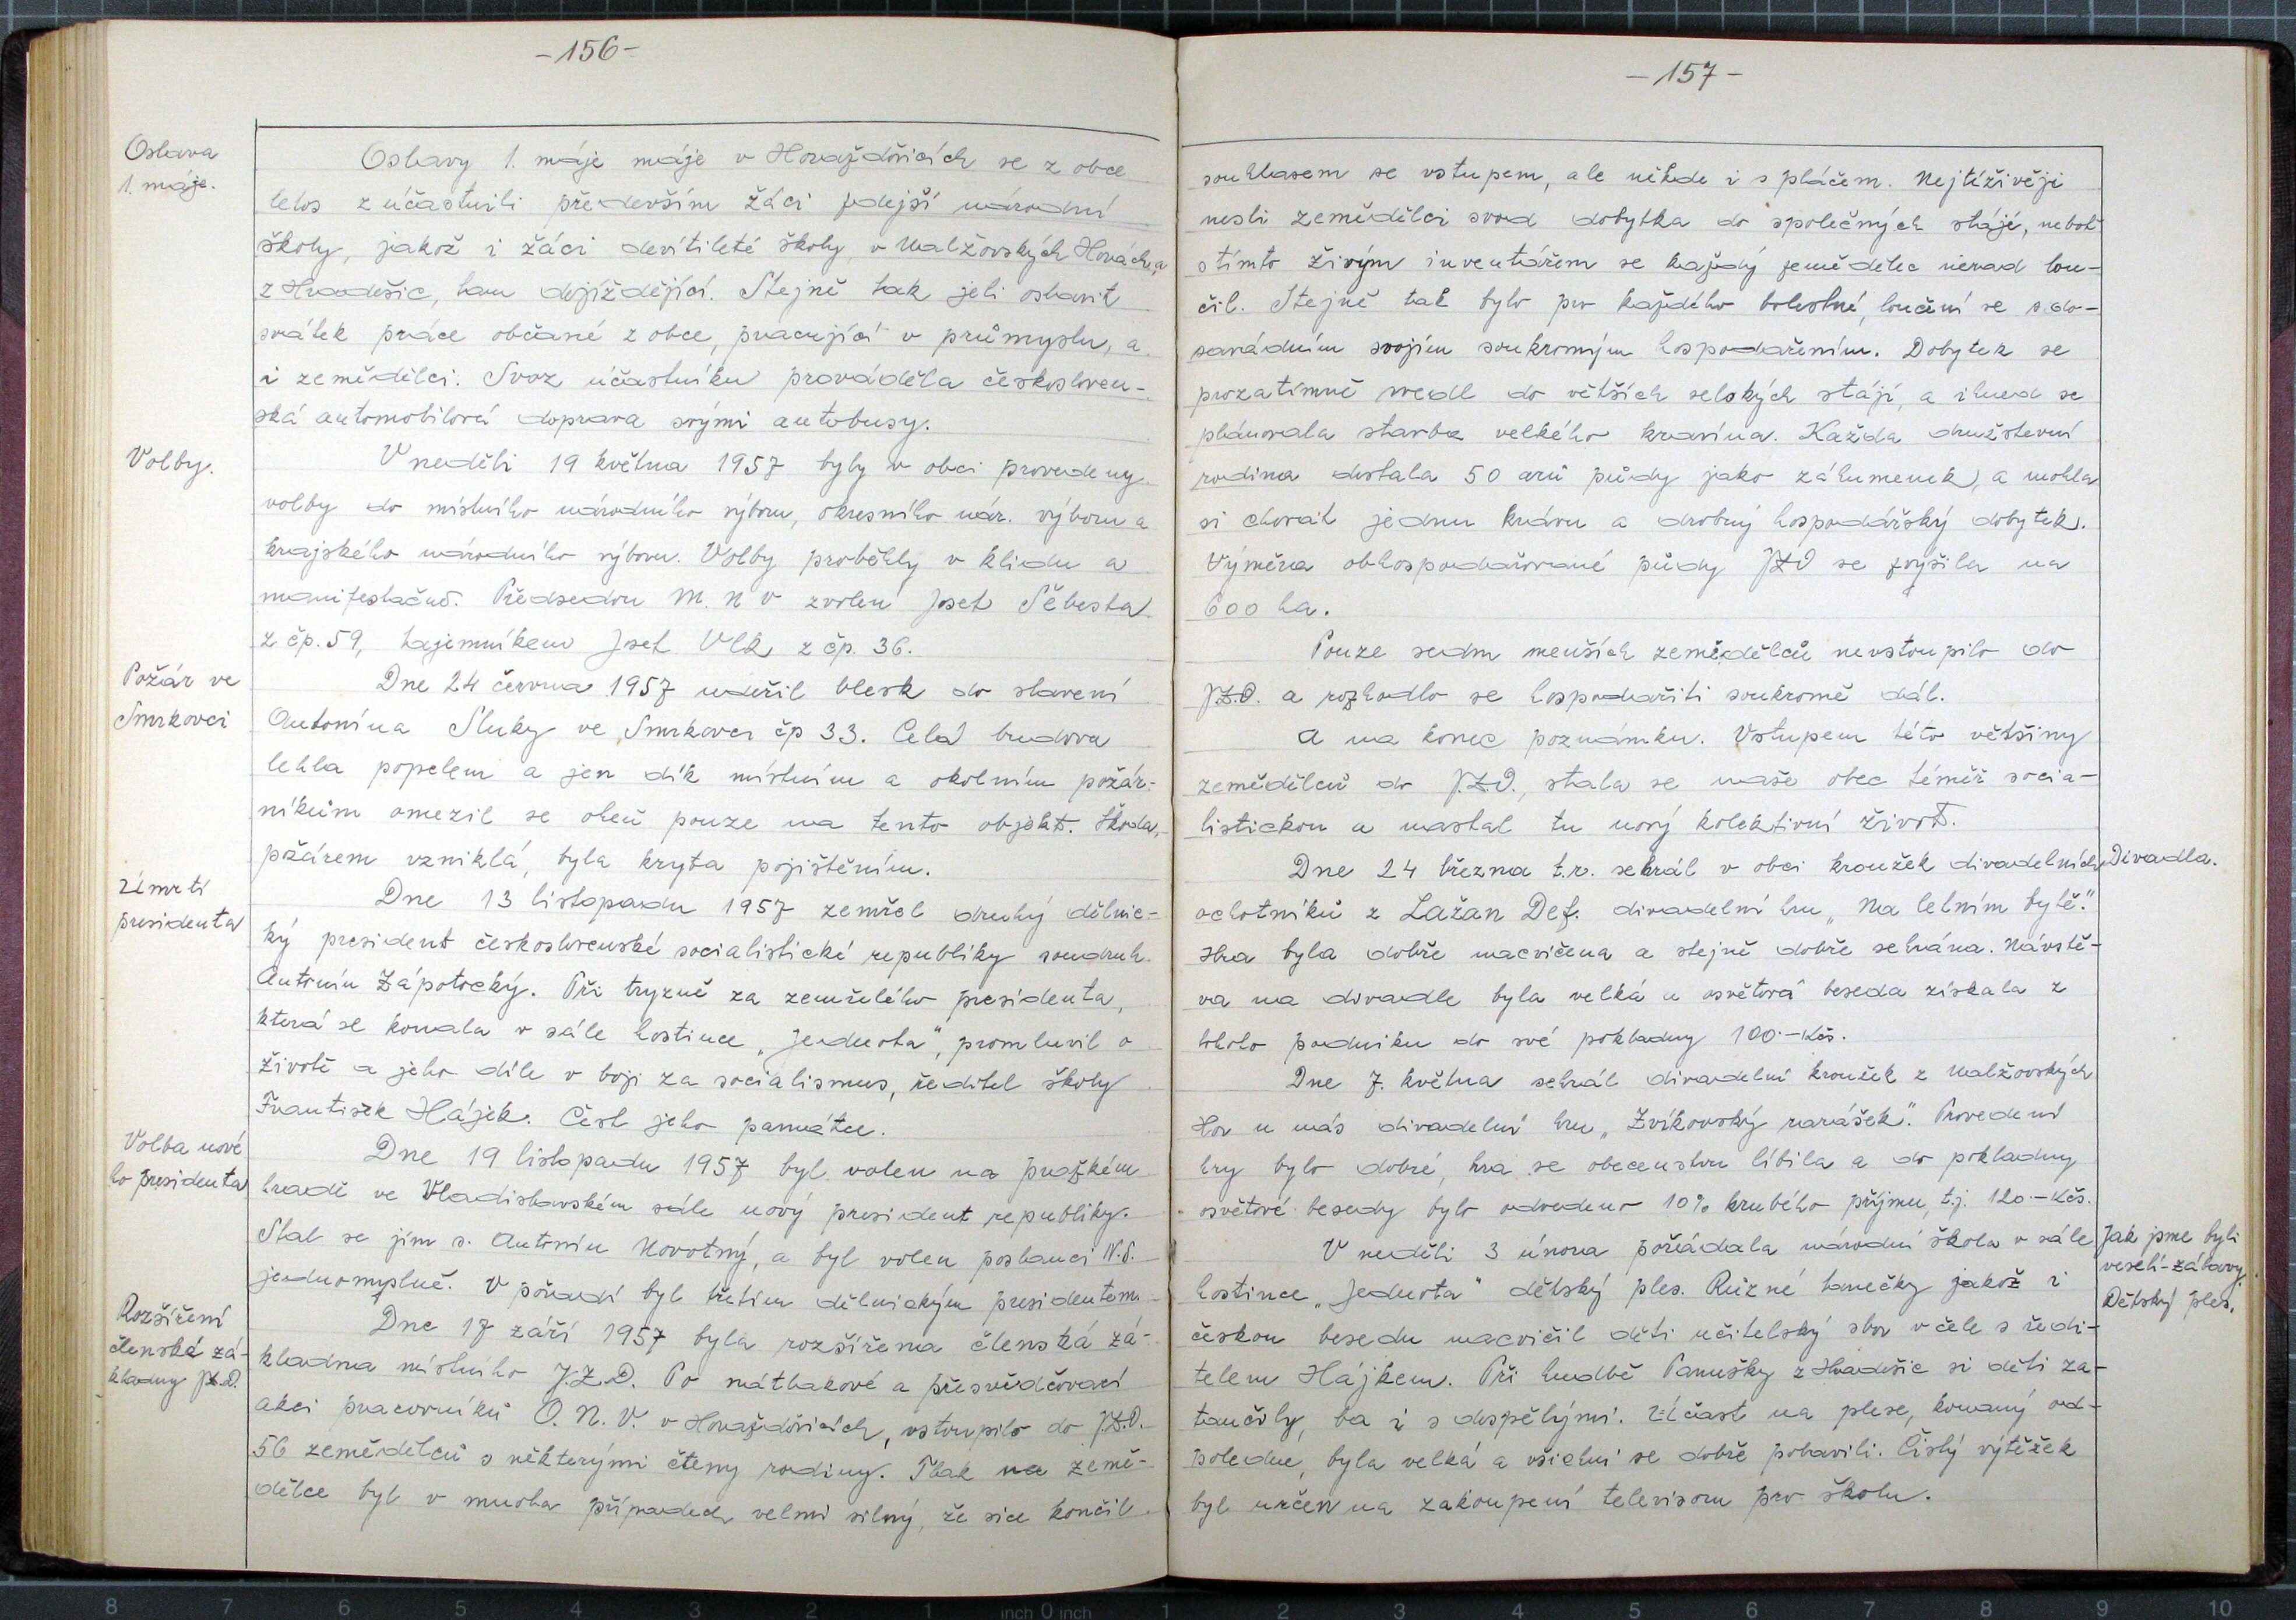 -156-
Oslava
1. máje.
Oslavy 1. máje máje v Horažďovicích se z obce
letos zúčastnili především žáci zdejší národní
školy, jakož i žáci devítileté školy v Nalžovských Horách, a
z Hradešic, tam dojíždějící. Stejně tak jeli oslavit
svátek práce občané z obce, pracující v průmyslu, a
i zemědělci. Svoz účastníku prováděla českosloven-
ská automobilová doprava svými autobusy.
Volby.
V neděli 19 května 1957 byly v obci provedeny
volby do místního národního výboru, okresního nár. výboru a
krajského národního výboru. Volby proběhly v klidu a
manifestačně. Předsedou M. N V zvolen Josef Šebesta
z čp. 59, tajemníkem Josef Vlk z čp. 36.
Požár ve
Smrkovci
Dne 24 června 1957 udeřil blesk do stavení
Antonína Sluky ve Smrkovci čp 33. Celá budova
lehla popelem a jen dík místním a okolním požár-
níkům omezil se oheň pouze na tento objekt. Škoda,
požárem vzniklá, byla kryta pojištěním.
Úmrtí
presidenta
Dne 13 listopadu 1957 zemřel druhý dělnic-
ký president československé socialistické republiky soudruh
Antonín Zápotocký. Při tryzně za zemřelého presidenta,
která se konala v sále hostince „Jednota", promluvil o
životě a jeho díle v boji za socialismus, ředitel školy
František Hájek. Čest jeho památce.
Volba nové
ho presidenta
Dne 19 listopadu 1957 byl volen na pražkém
hradě ve Vladislavském sále nový president republiky.
Stal se jím s. Antonín Novotný, a byl volen poslanci N.S.
jednomyslně. V pořadí byl třetím dělnickým presidentem.
Rozšíření
členské zá-
kladny JZD.
Dne 17 září 1957 byla rozšířena členská zá-
kladna místního J.Z.D. Po nátlakové a přesvědčovací
akci pracovníků O. N. V. v Horažďovicích, vstoupilo do JZD.
56 zemědělců s některými členy rodiny. Tlak na země-
dělce byl v mnoha případech velmi silný, že sice končil
-157-
souhlasem se vstupem, ale někde i s pláčem. Nejtíživěji
nesli zemědělci svod dobytka do společných stájí, neboť
s tímto živým inventářem se každý zemědělec nerad lou-
čil. Stejně tak bylo pro každého bolestné, loučení se s do-
savádním svojím soukromým hospodařením. Dobytek se
prozatímně svedl do větších selských stájí, a ihned se
plánovala stavba velkého kravína. Každa družstevní
rodina dostala 50 arů půdy jako záhumenek, a mohla
si chovat jednu krávu a drobný hospodářský dobytek.
Výměra obhospodařované půdy JZD se zvýšila na
600 ha.
Pouze sedm menších zemědělců nevstoupilo do
JZ.D. a rozhodlo se hospodařiti soukromě dál.
A na konec poznámku. Vstupem této většiny
zemědělců do J.Z.D., stala se naše obec téměř socia-
listickou a nastal tu nový kolektivní život.
Divadla.
Dne 24 března t.r. sehrál v obci kroužek divadelních
ochotníků z Lažan Def. divadelní hru „Na letním bytě".
Hra byla dobře nacvičena a stejně dobře sehrána. Návště-
va na divadle byla velká a osvětová beseda získala z
tohoto podniku do své pokladny 100.-Kčs.
Dne 7. května sehrál divadelní kroužek z Nalžovských
Hor u nás divadelní hru „Zvíkovský rarášek". Provedení
hry bylo dobré, hra se obecenstvu líbila a do pokladny
osvětové besedy bylo odvedeno 10% hrubého příjmu, t.j. 120.-Kčs.
Jak jsme byli
veselí-zábavy.
Dětský ples.
V neděli 3 února pořádala národní škola v sále
hostince „Jednota" dětský ples. Různé tanečky jakož i
českou besedu nacvičil děti učitelský sbor v čele s ředi-
telem Hájkem. Při hudbě Panušky z Hradešic si děti za-
tančily, ba i s dospělými. Účast na plese, konaný od-
poledne, byla velká a všichni se dobře pobavili. Čistý výtěžek
byl určen na zakoupení televisoru pro školu.
8 7 6 5 4 3 2 1 inch 0 inch 1 2 3 4 5 6 7 8 9 10